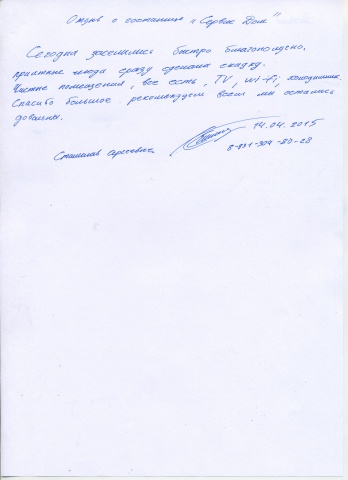 Отзыв о гостинице "Сервис Дом"
Сегодня заселились быстро благополучно,
приятные сразу сделали скидку.
Чистые помещения, все есть, TV, wi-fi, холодильник.
Спасибо большое рекомендуем всем мы остались
довольны.
Станислав Сергеевич 14.04.2015